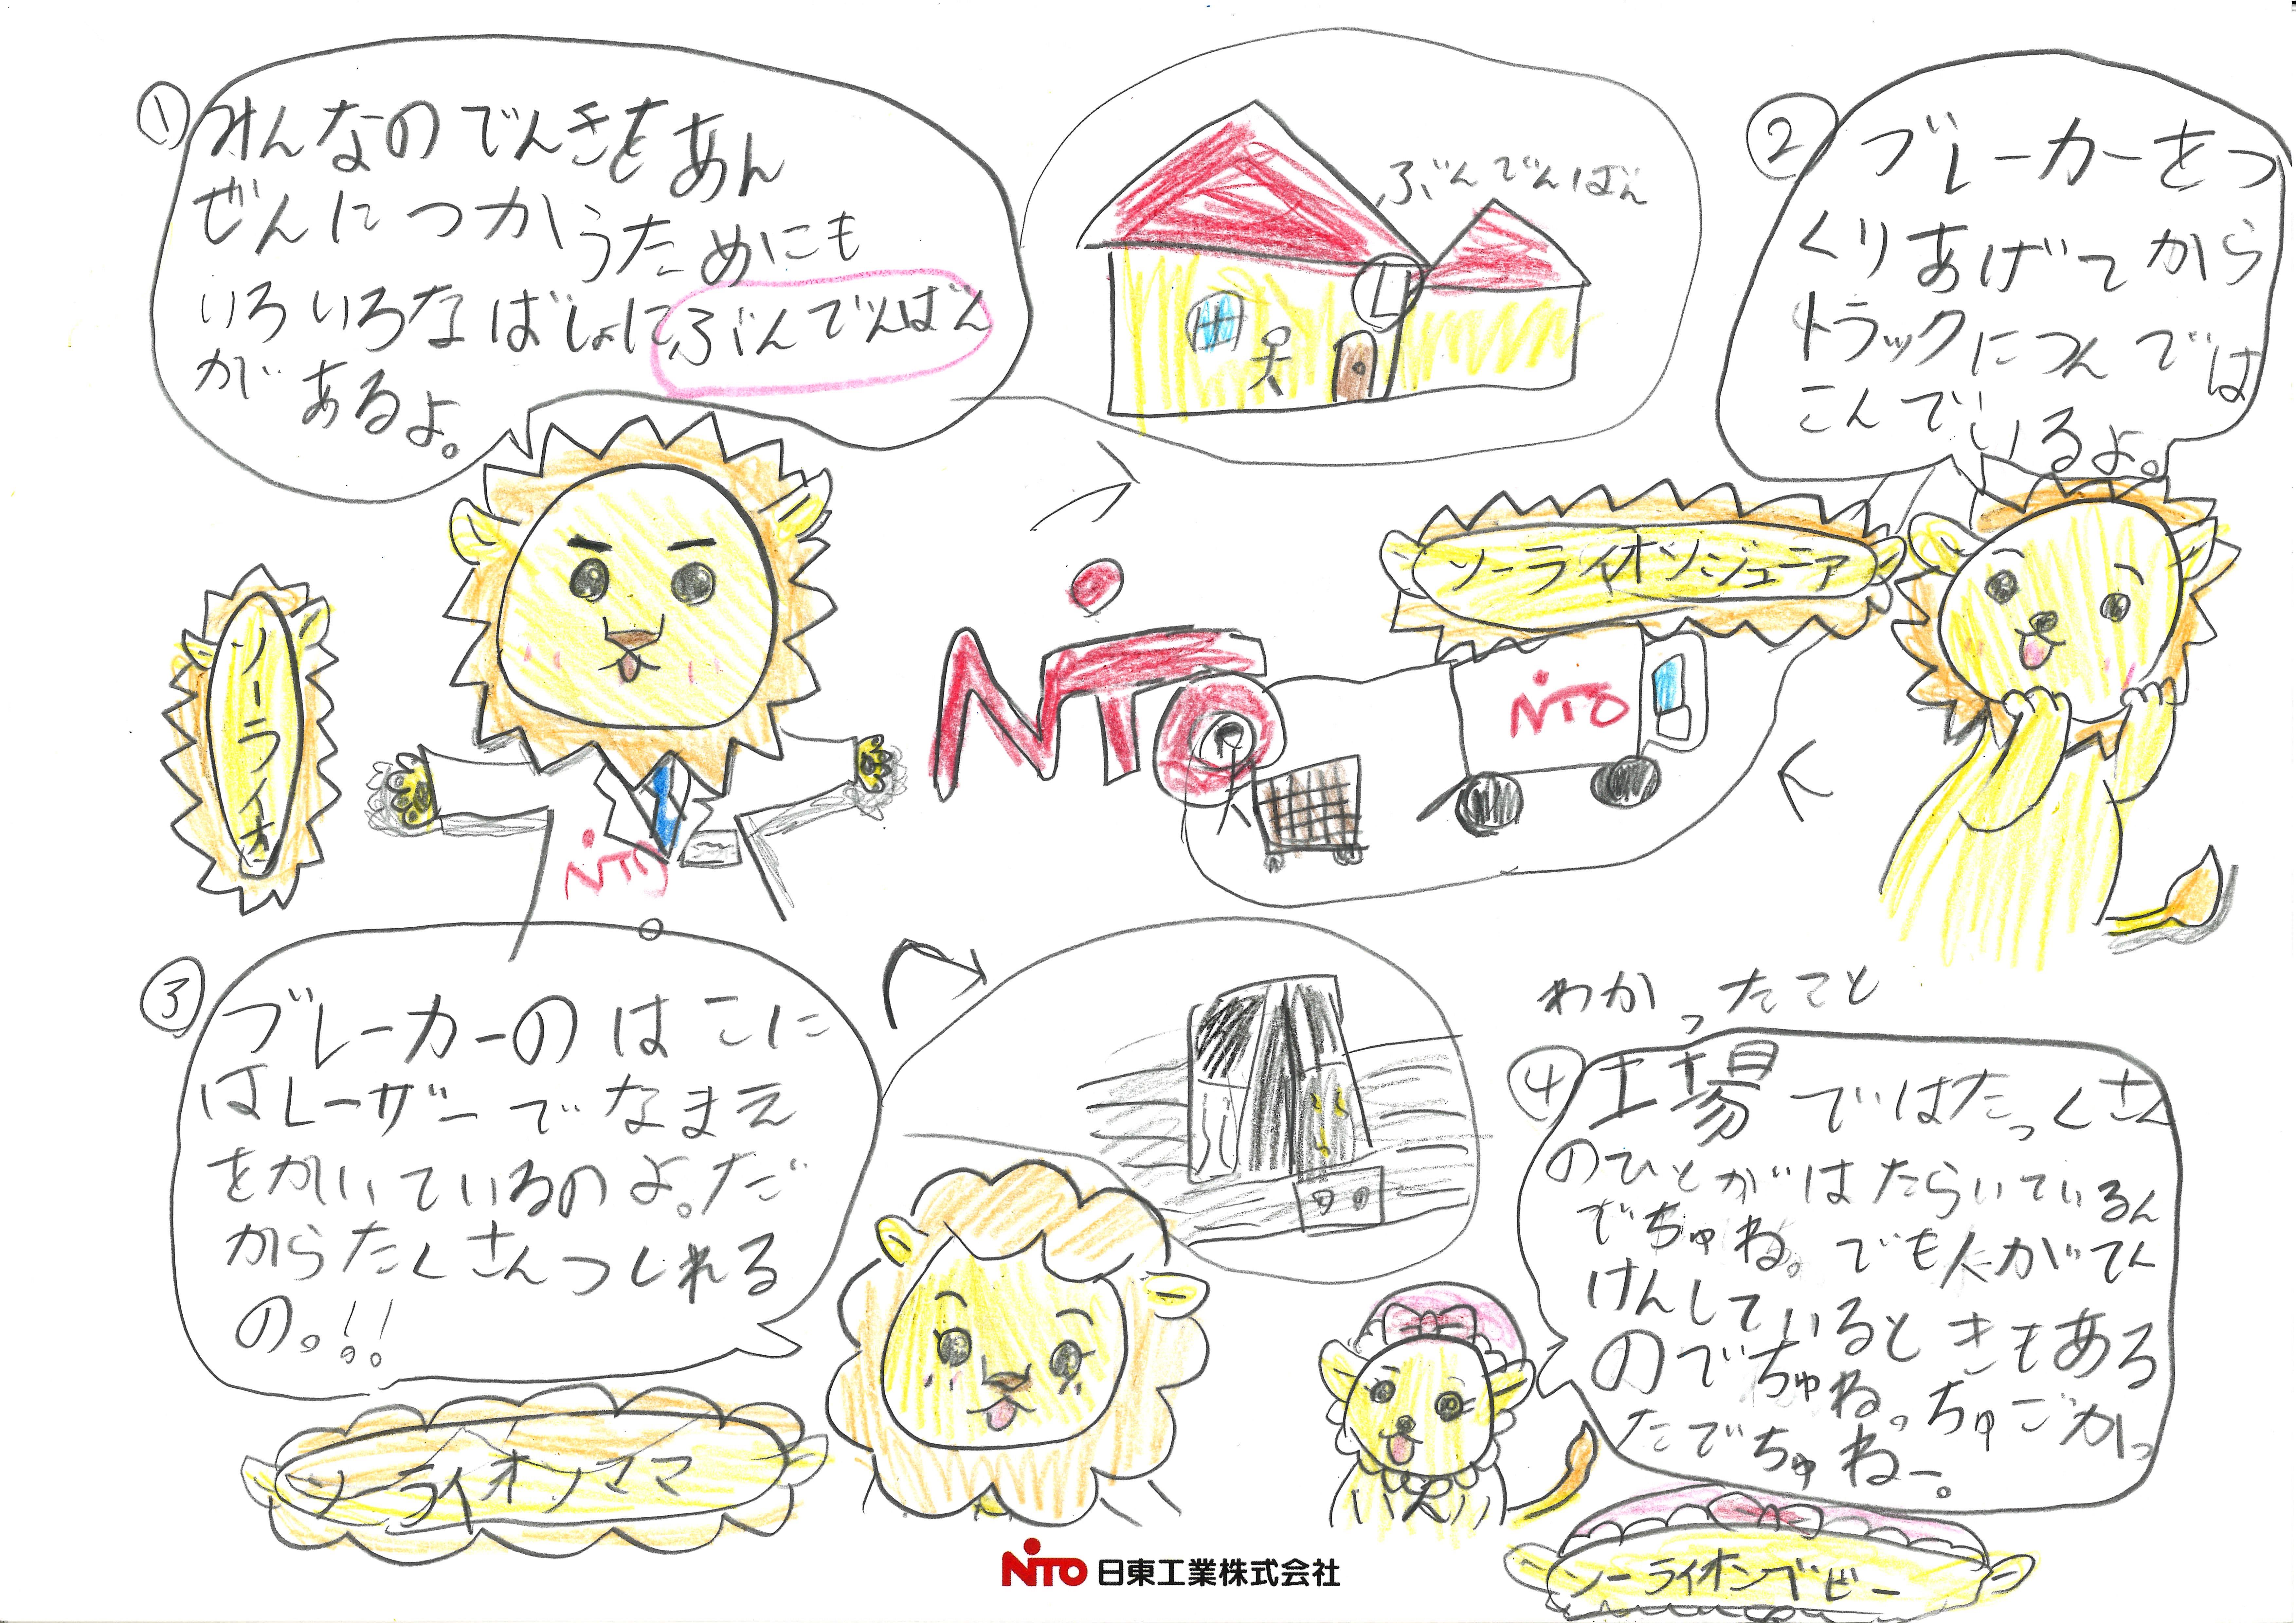 ①
みんなのでんきをあん
ぜんにつかうためにも
いろいろなばしょにぶんでんばん
があるよ。
ぶんでんばん
②
ブレーカーをつ
くりあげてから
トラックにつんでは
こんでいるよ。
ソーライオンジュニア
ソーライオ
NITO
NITO
NITO
③
ブレーカーのはこに
はレーザーでなまえ
をかいているのよ。だ
からたくさんつくれる
の。!!
ソーライオンママ
わかったこと
④
工場ではたっくさん
のひとがはたらいているん
でちゅね。でも人がてん
けんしているときもある
のでちゅね。ちゅごかっ
たでちゅねー。
ソーライオンベビー
NITO 日東工業株式会社